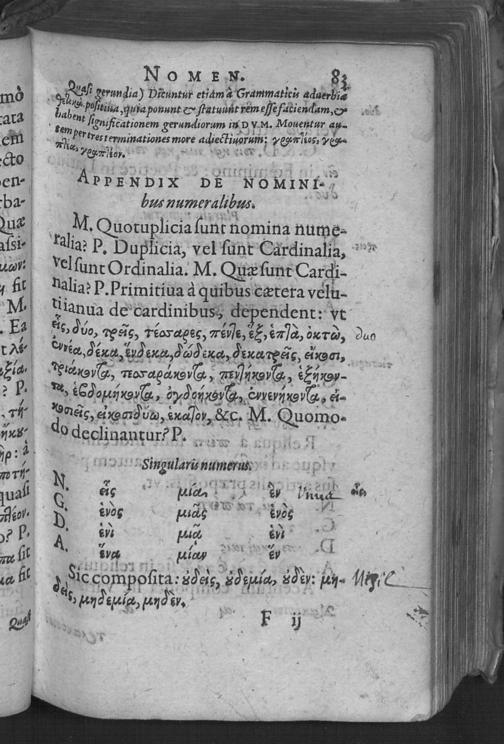 NOMEN. 83
Quasi gerundia) Dicuntur etiam à Grammaticis adverbia
θετικὰ positiua, quia ponunt & statuunt rem esse faciendam, &
habent significationem gerundiorum in DVM. Mouentur au-
tem per tres terminationes more adiectiuorum: γραπτέος, γρα-
πτέα, γραπτέον.
APPENDIX DE NOMINI-
bus numeralibus.
M. Quotuplicia sunt nomina nume-
ralia? P. Duplicia, vel sunt Cardinalia,
vel sunt Ordinalia. M. Quæ sunt Cardi-
nalia? P. Primitiua à quibus cætera velu-
ti ianua de cardinibus, dependent: vt
εἷς, δύο, τρεῖς, τέσσαρες, πέντε, ἓξ, ἑπτὰ, ὀκτὼ, duo
ἐννέα, δέκα, ἕνδεκα, δώδεκα, δεκατρεῖς, εἴκοσι,
τριάκοντα, τεσσαράκοντα, πεντήκοντα, ἑξήκον-
τα, ἑβδομήκοντα, ὀγδοήκοντα, ἐννενήκοντα, εἰ-
κοσιεῖς, εἰκοσιδύω, ἑκατὸν, &c. M. Quomo-
do declinantur? P.
Singularis numerus.
N. εἷς μία ἓν
G. ἑνὸς μιᾶς ἑνὸς
D. ἑνὶ μιᾷ ἑνὶ
A. ἕνα μίαν ἕν
Sic composita: οὐδεὶς, οὐδεμία, οὐδὲν: μη-
δεὶς, μηδεμία, μηδὲν.
F ij